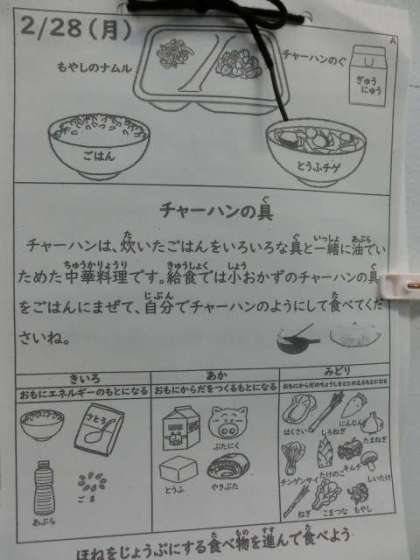 2/28(月)
もやしのナムル
チャーハンのぐ
ぎゅう
にゅう
ごはん
とうふチゲ
チャーハンの具
チャーハンは、炊いたごはんをいろいろな具と一緒に油でい
ためた中華料理です。給食では小おかずのチャーハンの具
をごはんにまぜて、自分でチャーハンのようにして食べてくだ
さいね。
きいろ
おもにエネルギーのもとになる
さとう
あぶら
ごま
あか
おもにからだをつくるもとになる
ぶたにく
とうふ
やきぶた
みどり
おもにからだのちょうしをととのえるもとになる
はくさい
しろねぎ
にんじん
たまねぎ
チンゲンサイ
たけのこ
キムチ
しいたけ
ねぎ
こまつな
もやし
ほねをじょうぶにする食べ物を進んで食べよう